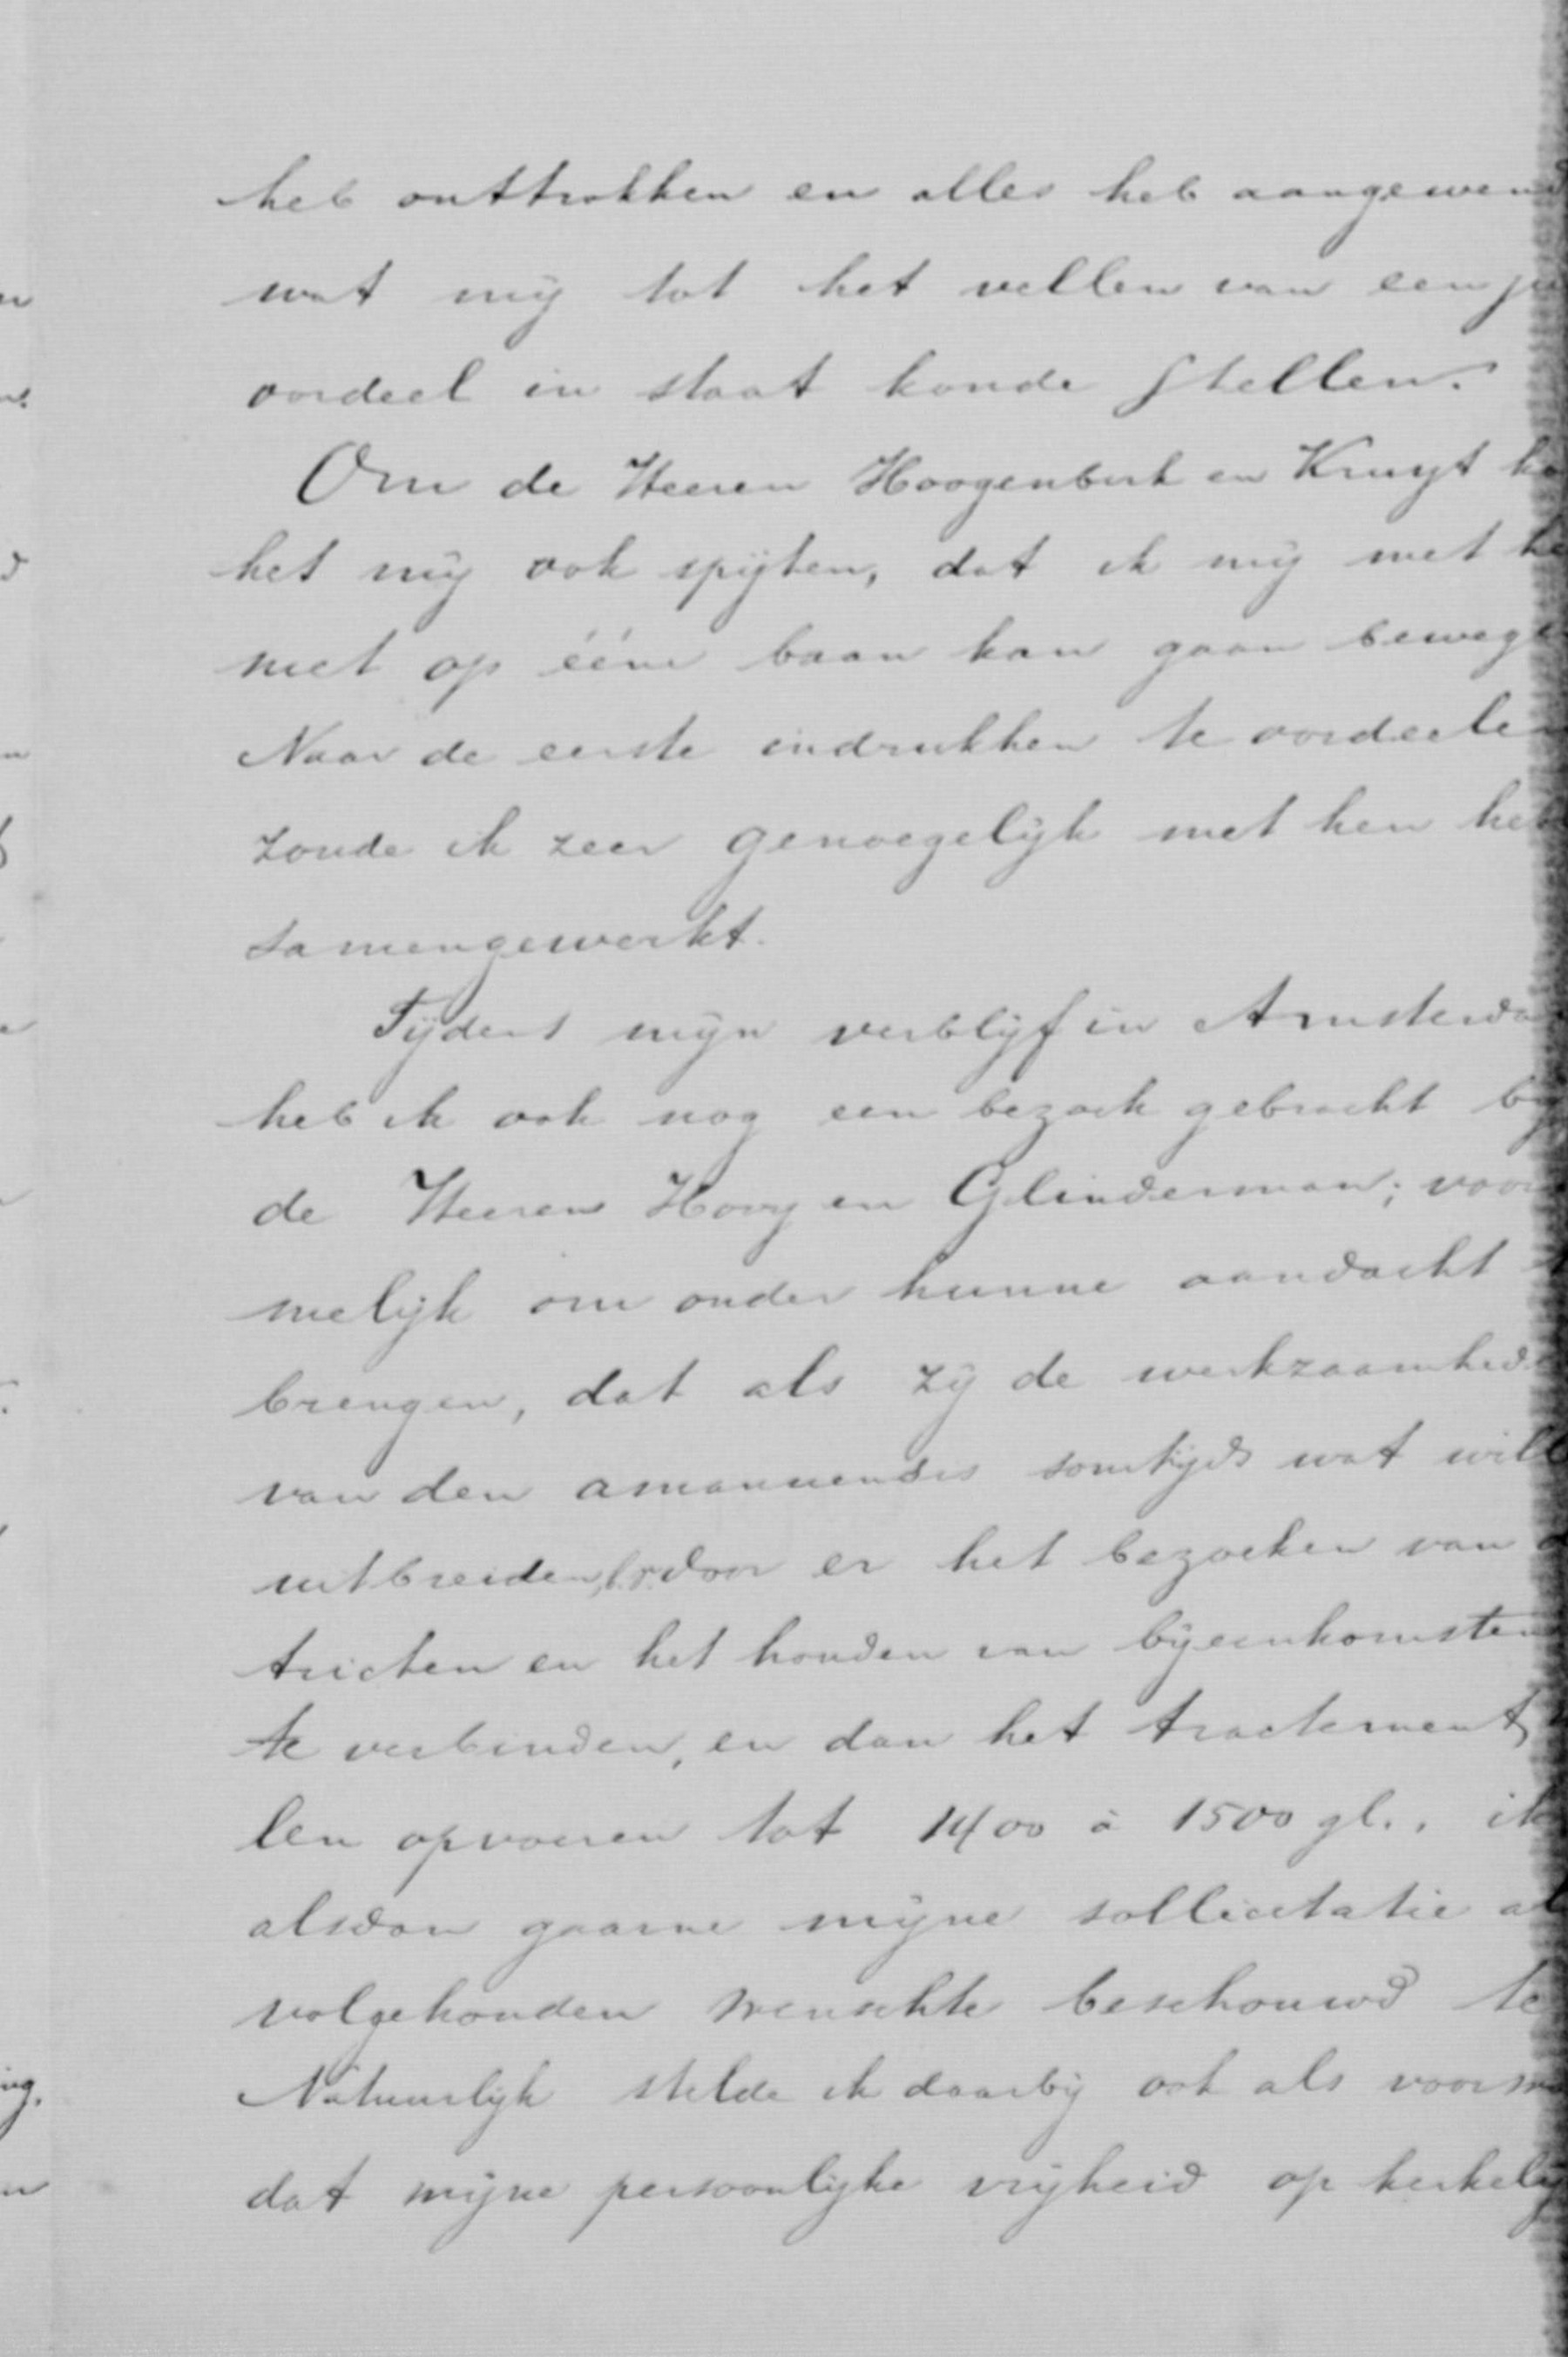 heb onttrokken en alles heb aangewend
wat mij tot het vellen van een ju
oordeel in staat konde stellen.
Om de Heeren Hoogenbirk en Kruyt
het mij ook spijten, dat ik mij met
niet op ééne baan kan gaan bewege
Naar de eerste indrukken te oordeelen
zoude ik zeer genoegelijk met hen heb
samengewerkt.
Tijdens mijn verblijf in Amsterda
heb ik ook nog een bezoek gebracht bij
de Heeren Hovy en Glinderman; voor
melijk om onder hunne aandacht
brengen, dat als zij de werkzaamhede
van den amanuensis somtijds wat will
uitbreiden, b.v. door er het bezoeken van
tricten en het houden van bijeenkomsten
te verbinden, en dan het tractement
len opvoeren tot 1400 à 1500 gl., ik
alsdan gaarne mijne sollicitatie al
volgehouden wenschte beschouwd te
Natuurlijk stelde ik daarbij ook als voorw
dat mijne persoonlijke vrijheid op kerkelij